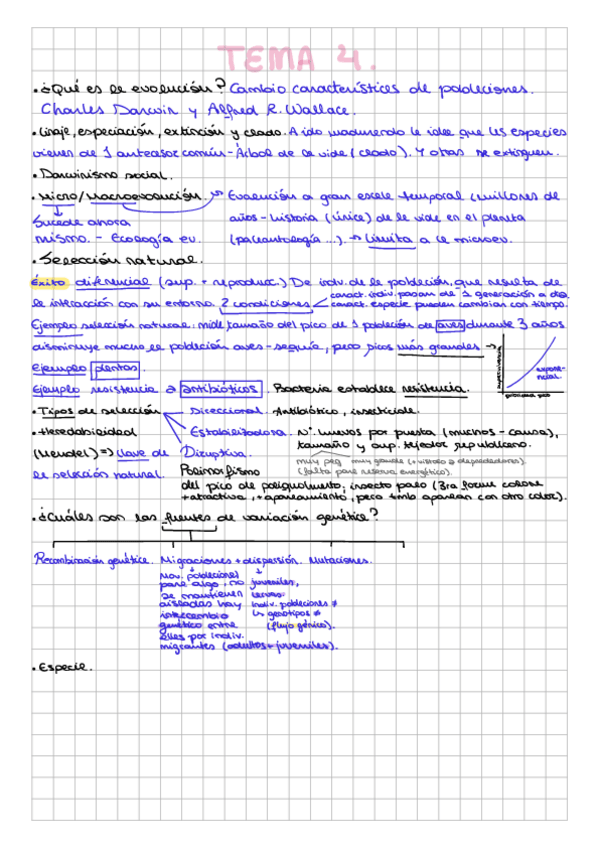 TEMA 4.
• ¿Qué es la evolución? Cambio características de poblaciones.
Charles Darwin y Alfred R. Wallace.
• Linaje, especiación, extinción y clado. A ido madurando la idea que las especies
vienen de 1 antecesor común - Árbol de la vida (clado). Y otras se extinguen.
• Darwinismo social.
• Micro/Macroevolución. → Evolución a gran escala temporal (millones de
Sucede ahora años - historia (única) de la vida en el planeta
mismo. - Ecología ev. (paleontología ...). → Limita a la microev.
• Selección natural.
Éxito diferencial (sup. + reproducc.) De indv. de la población, que resulta de
la interacción con su entorno. 2 condiciones caract. indiv. pasan de 1 generación a otra.
caract. especie pueden cambiar con tiempo.
Ejemplo selección natural: mide tamaño del pico de 1 población de aves durante 3 años
disminuye mucho la población aves - sequía, pero picos más grandes →
supervivencia
exponencial.
pico
Ejemplo plantas.
Ejemplo resistencia a antibióticos. Bacteria establece resistencia.
• Tipos de selección Direccional. Antibiótico, insecticida.
• Heredabilidad Estabilizadora. Nº huevos por puesta (muchos - causa),
tamaño y sup. tejedor republicano.
(Mendel) => clave de Disruptiva. muy peq muy grande (+ vistoso a depredadores).
(falta para reserva energética).
la selección natural. Polimorfismo
del pico de paligualmento, insecto palo (3ra forma colores
+ atractiva, + apareamiento, pero tmb aparean con otro color).
• ¿Cuáles son las fuentes de variación genética?
Recombinación genética. Migraciones + dispersión. Mutaciones.
Mov. poblaciones juveniles,
para algo, no larvas.
se mantienen indiv. poblaciones ≠
aisladas hay ↳ genotipos ≠
intercambio (flujo génico).
genético entre
ellas por indiv.
migrantes (adultos + juveniles).
• Especie.